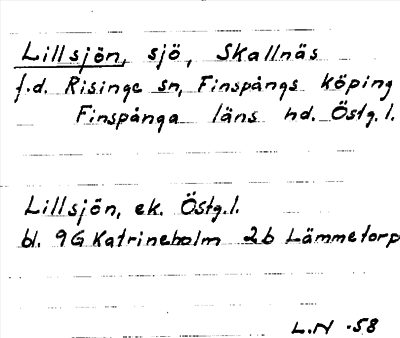 Lillsjön, sjö, Skallnäs
f.d. Risinge sn, Finspångs köping
Finspånga läns hd. Östg.l.
Lillsjön, ek. Östg.l.
bl. 9G Katrineholm 2b Lämmetorp
L.N -58